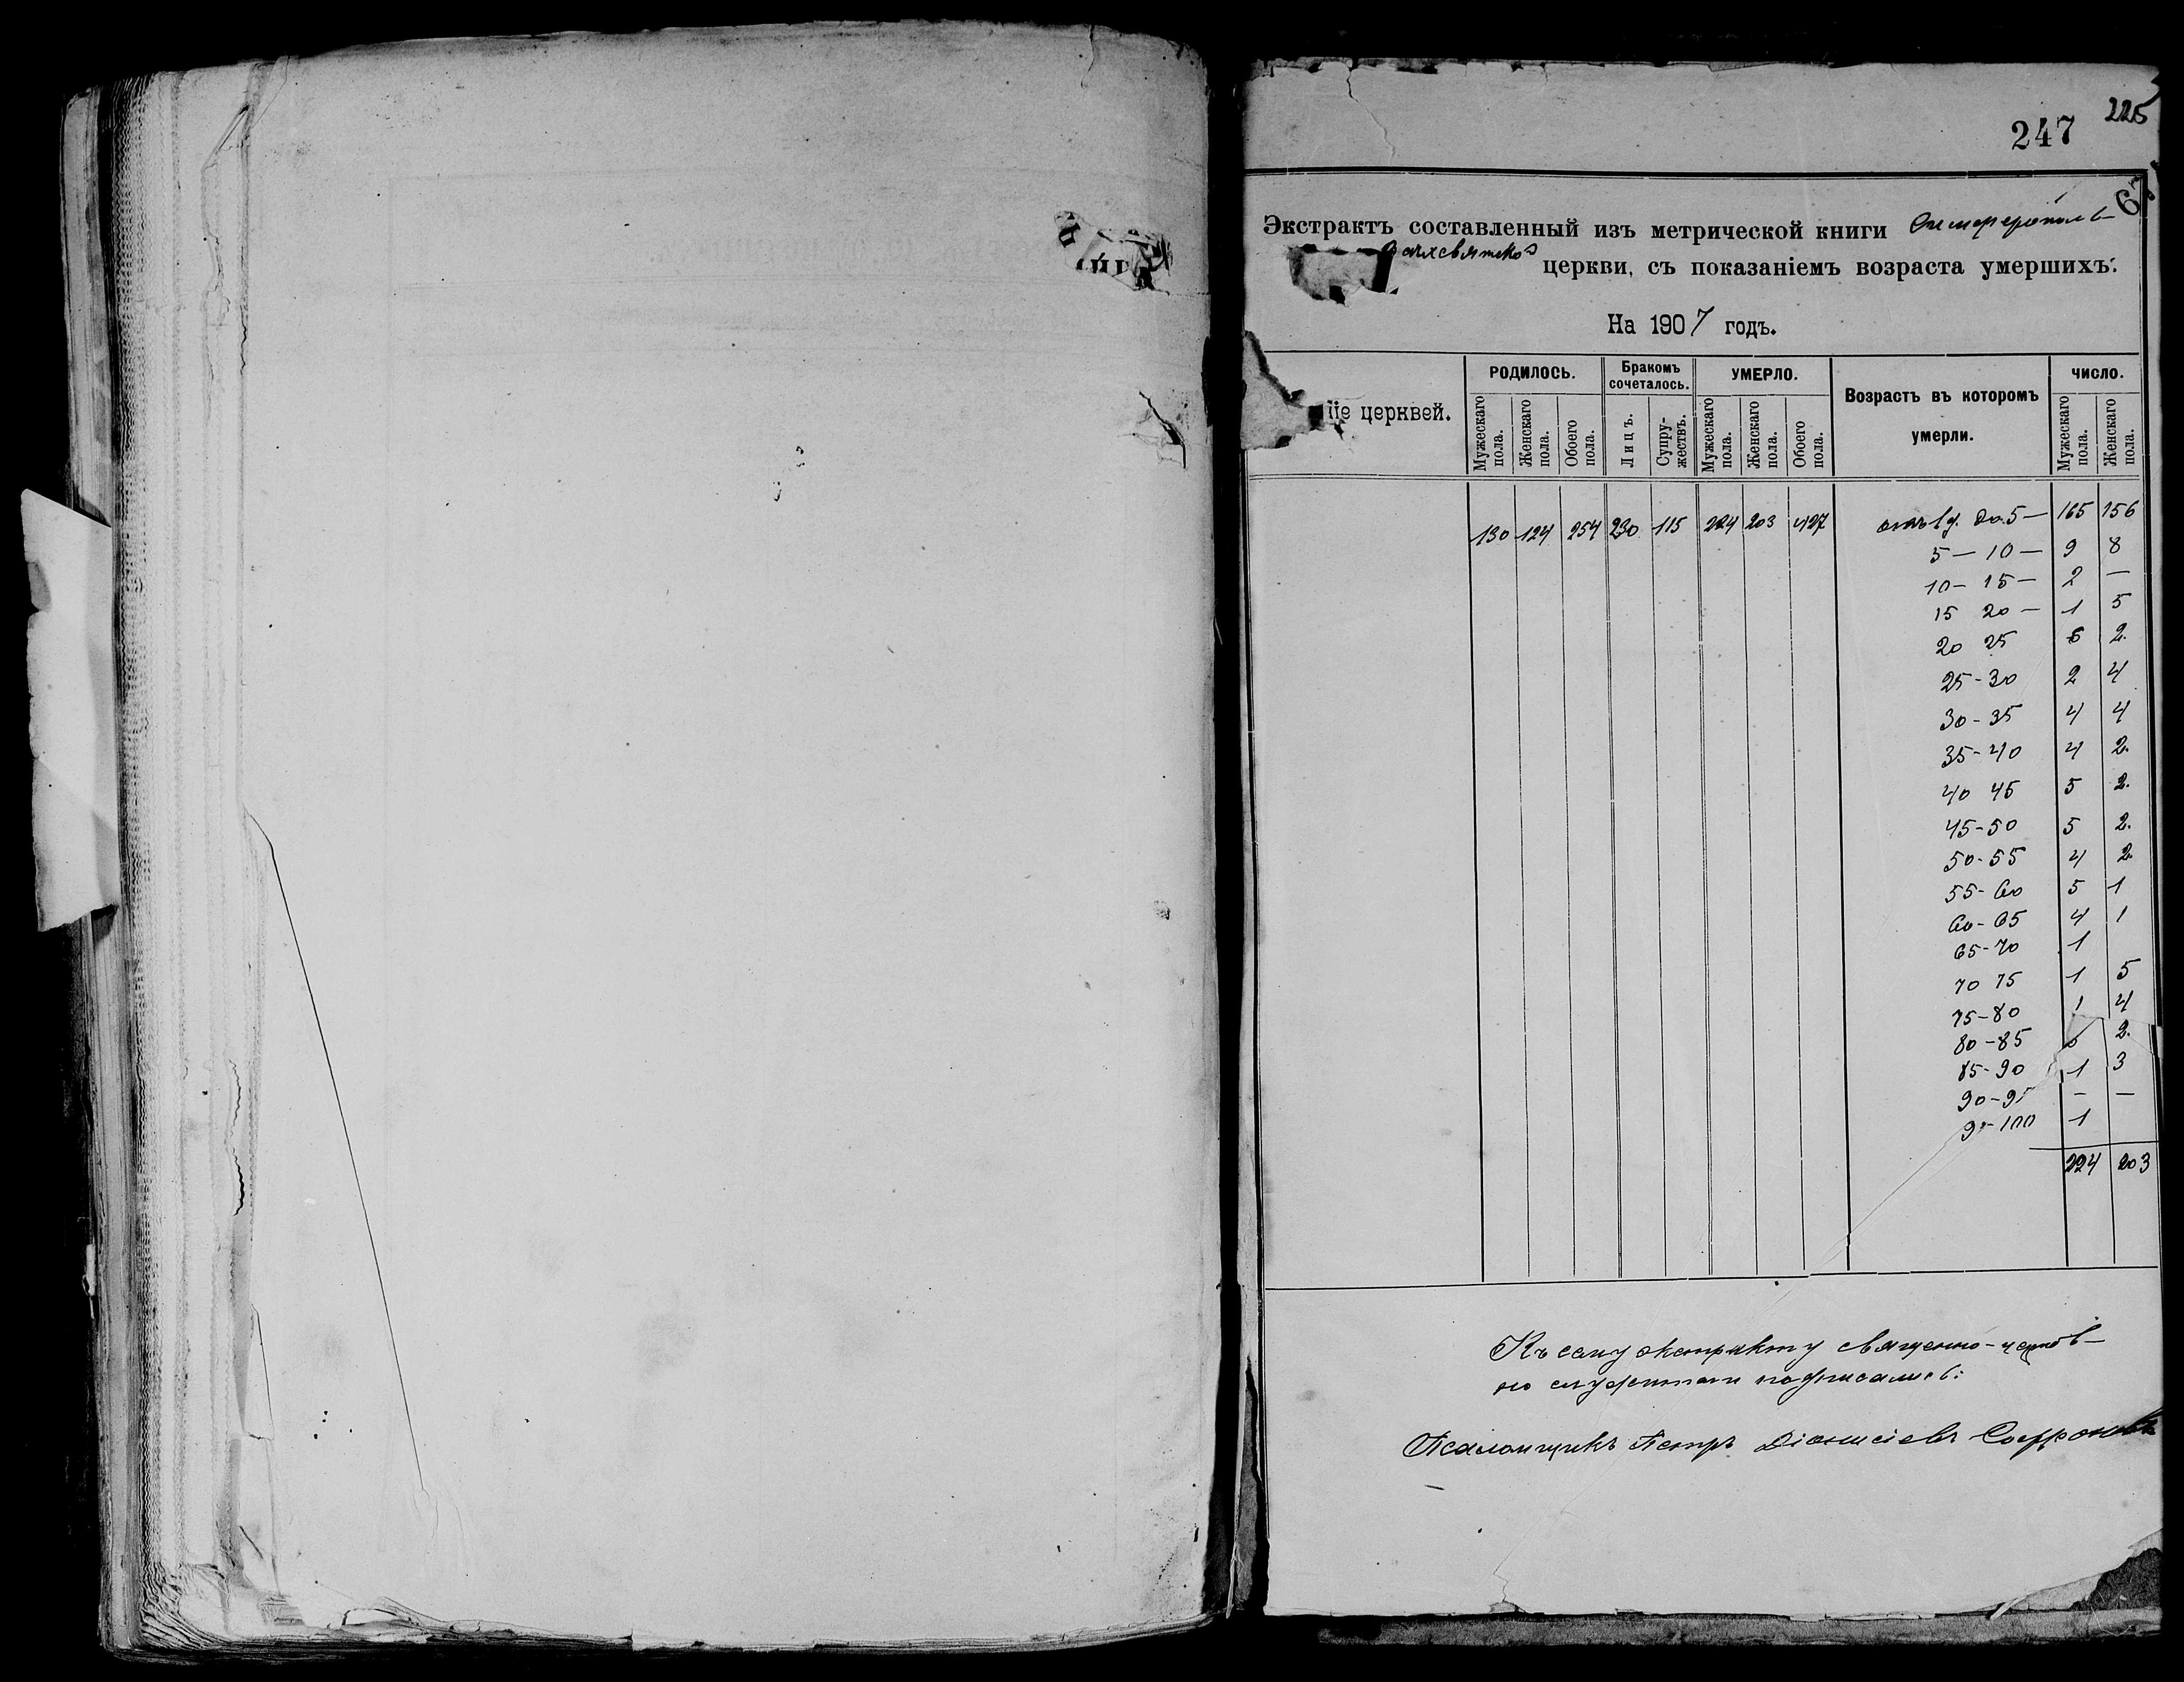 225
247
67
Экстрактъ составленный изъ метрической книги Симферополь-
Всехсвятской церкви, съ показаніемъ возраста умершихъ.
На 1907 годъ.
церквей.
РОДИЛОСЬ. Бракомъ сочеталось. УМЕРЛО. Возрастъ въ которомъ умерли. ЧИСЛО.
Мужескаго пола. Женскаго пола. Обоего пола. Лицъ. Супружествъ. Мужескаго пола. Женскаго пола. Обоего пола. Мужескаго пола. Женскаго пола.
130 124 254 230 115 224 203 427 отъ 1 д. до 5 — 165 156
5 — 10 — 9 8
10 — 15 — 2 —
15 20 — 1 5
20 25 6 2.
25-30 2 4
30-35 4 4
35-40 4 2.
40 45 5 2.
45-50 5 2.
50-55 4 2.
55-60 5 1
60-65 4 1
65-70 1
70 75 1 5
75-80 1 4
80-85 2.
85-90 1 3
90-95 — —
95-100 1
224 203
Къ сему экстракту священно-церков-
но служители подписались:
Псаломщикъ Петръ Діонисіевъ Софроновъ